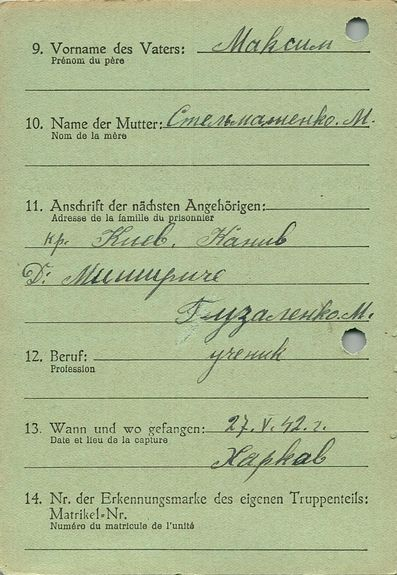 9. Vorname des Vaters: Максим
Prénom du père
10. Name der Mutter: Стельмашенко. М.
Nom de la mère
11. Anschrift der nächsten Angehörigen:
Adresse de la famille du prisonnier
кр. Киев, Канив
Д: Мишириче
Глузаленко. М.
12. Beruf: ученик
Profession
13. Wann und wo gefangen: 27. V. 42. г.
Date et lieu de la capture
Харкав
14. Nr. der Erkennungsmarke des eigenen Truppenteils:
Matrikel=Nr.
Numéro du matricule de l'unité